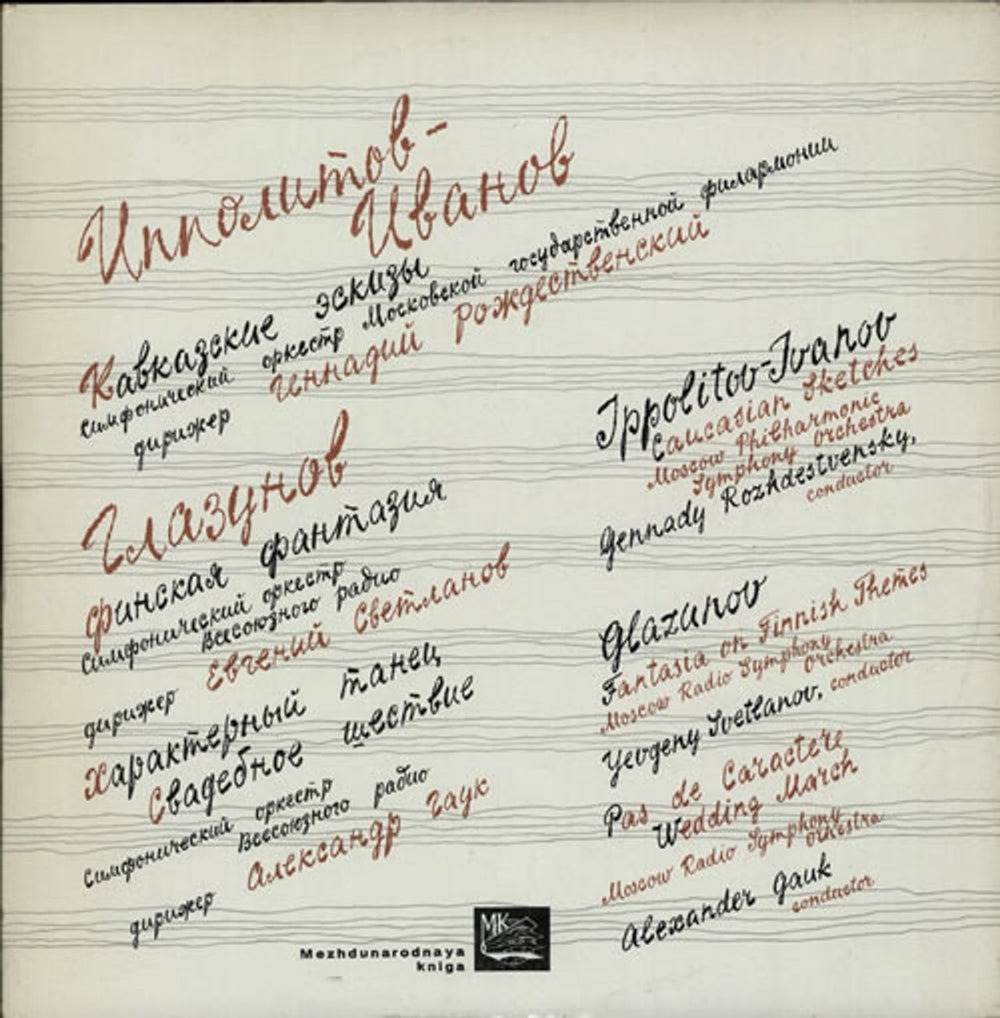 Ипполитов-
Иванов
Кавказские эскизы
симфонический оркестр Московской государственной филармонии
дирижер Геннадий Рождественский
Глазунов
финская фантазия
Симфонический оркестр
Всесоюзного радио
дирижер Евгений Светланов
характерный танец
Свадебное шествие
Симфонический оркестр
Всесоюзного радио
дирижер Александр Гаук
Ippolitov-Ivanov
Caucasian Sketches
Moscow Philharmonic
Symphony Orchestra
Gennady Rozhdestvensky,
conductor
Glazunov
Fantasia on Finnish Themes
Moscow Radio Symphony
Orchestra
Yevgeny Svetlanov, conductor
Pas de Caractere
Wedding March
Moscow Radio Symphony
Orhestra
Alexander Gauk
conductor
MK
Mezhdunarodnaya
kniga